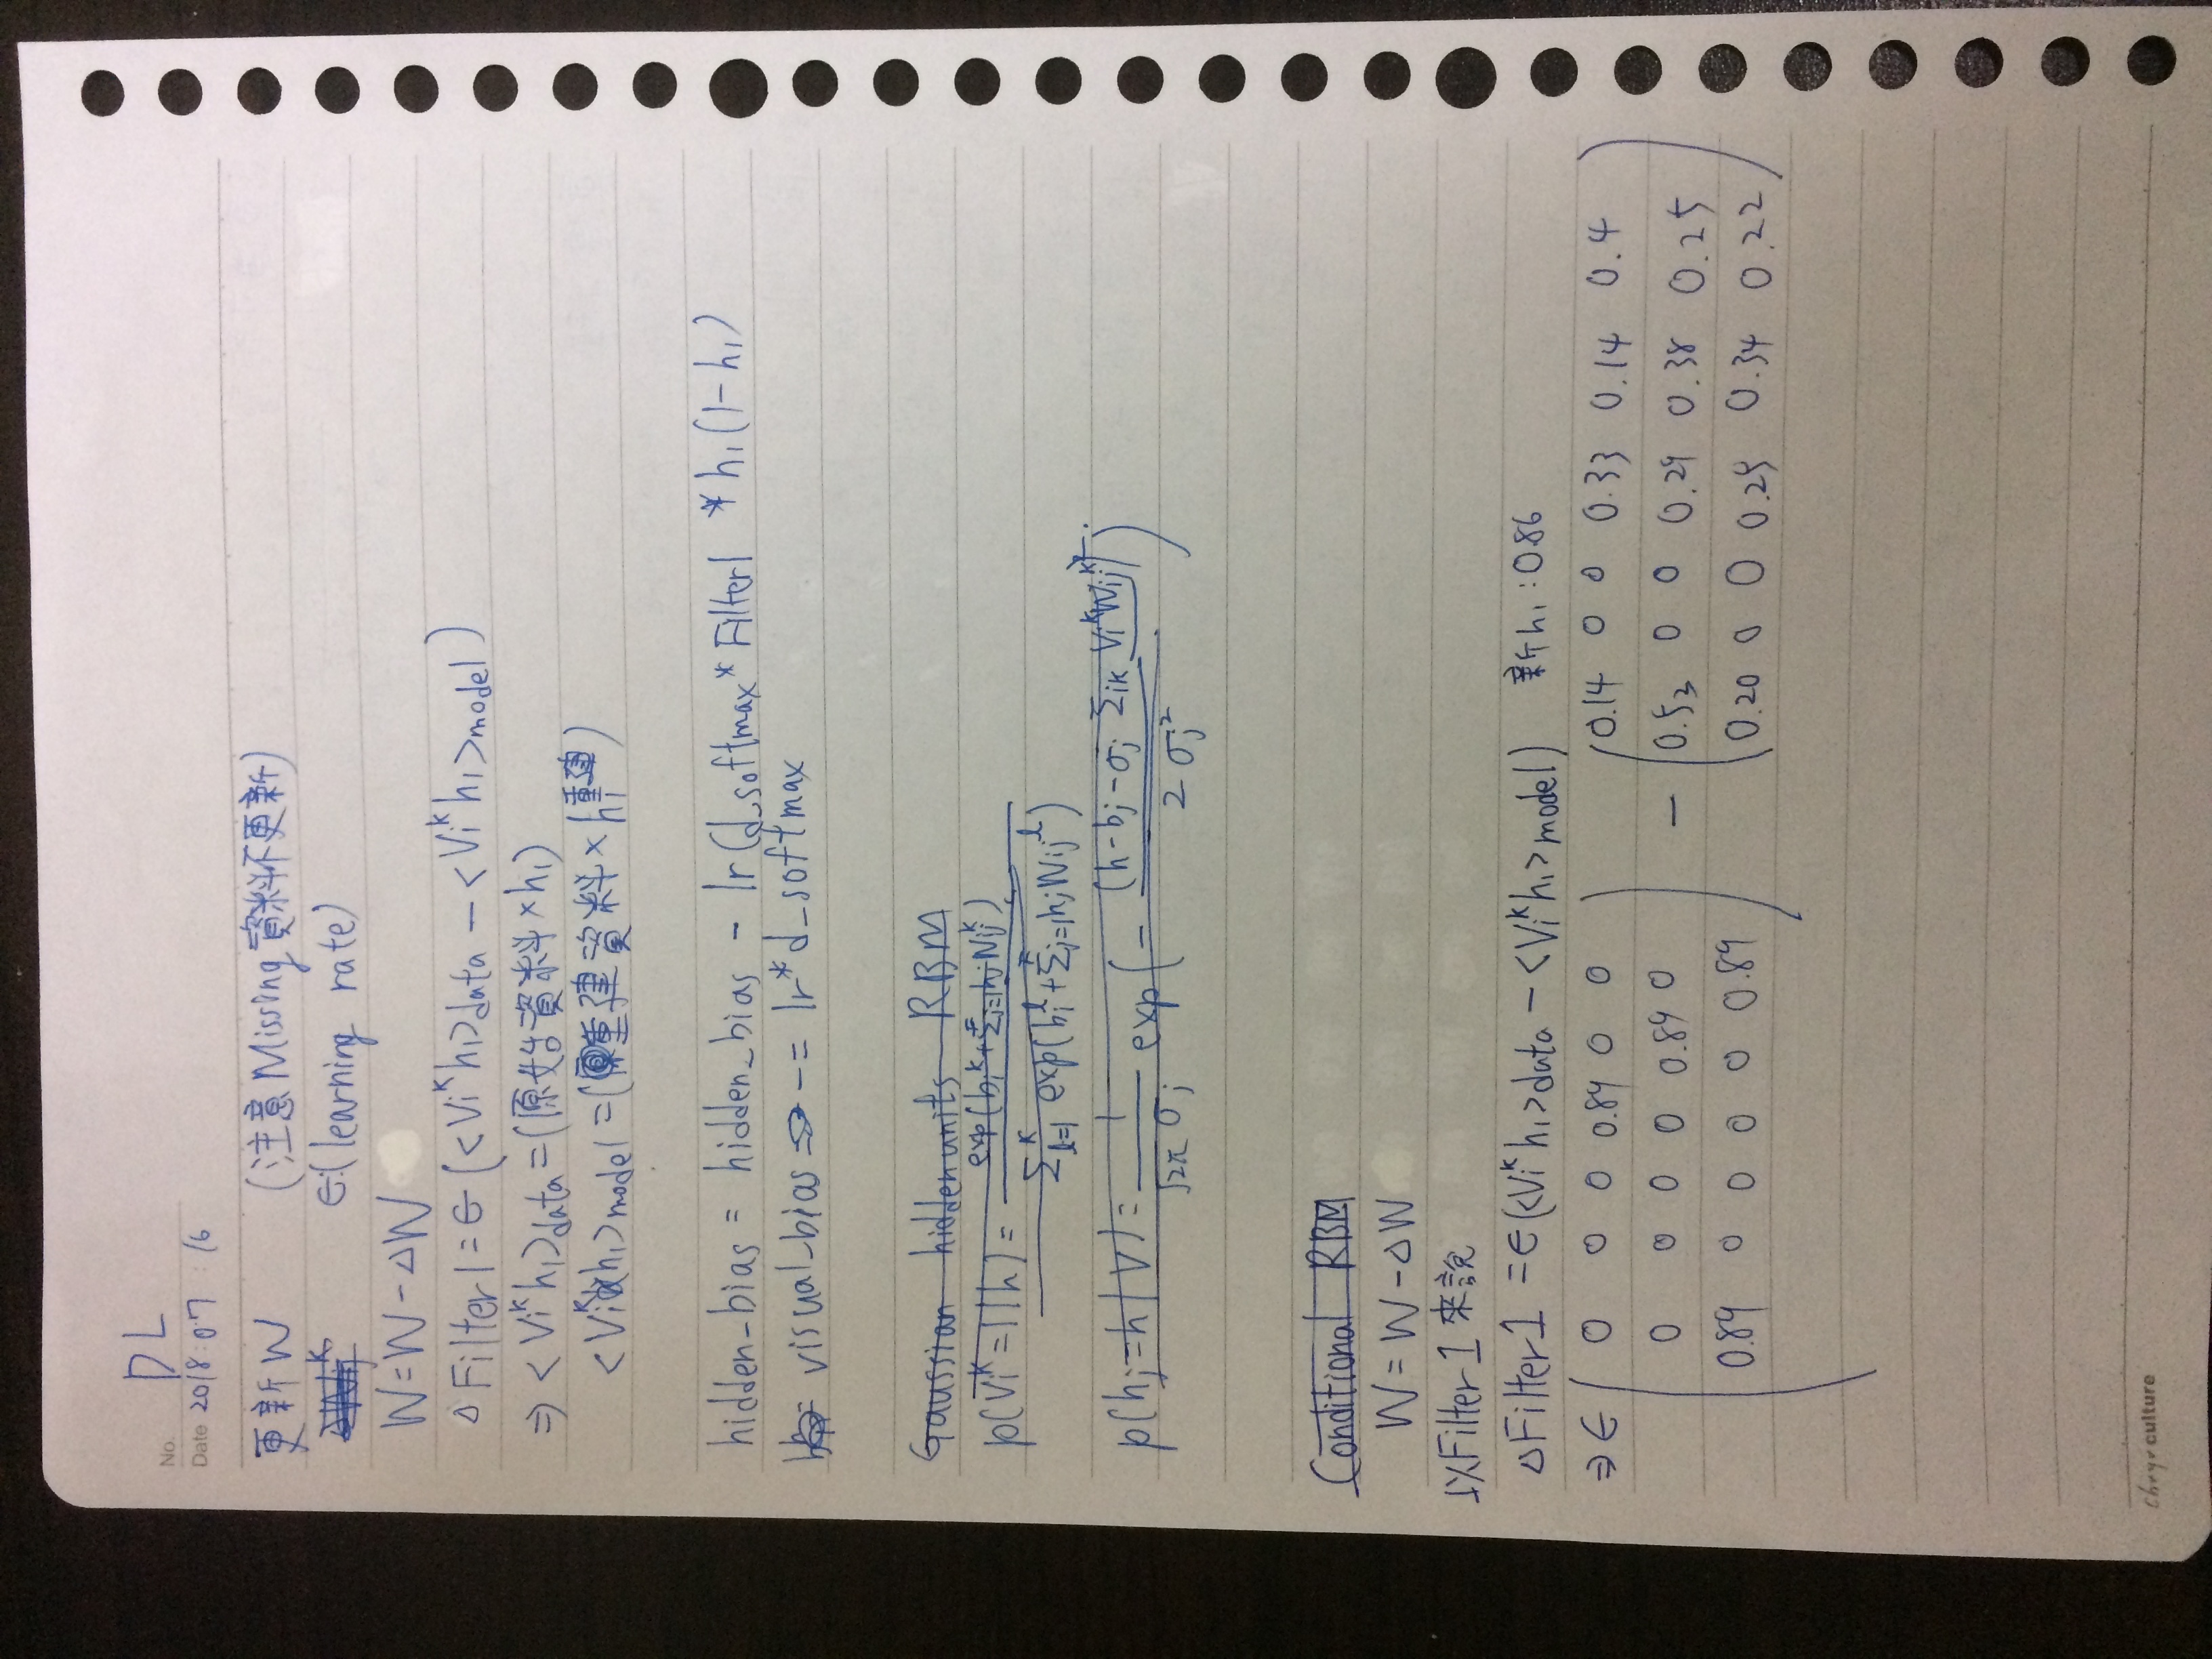 No. DL
Date 2018:07:16
更新W (注意Missing資料不更新)
ΔWij^k ∈:(learning rate)
W=W-ΔW
ΔFilter1=∈(<Vi^k h1>data - <Vi^k h1>model)
⇒ <Vi^k h1>data=(原始資料×h1)
<Vi^k h1>model=(重建資料×h1^重建)
hidden_bias = hidden_bias - lr(d_softmax*Filter1 *h1(1-h1)
visual_bias -= lr*d_softmax
Gaussian hidden units RBM
p(Vi^k=1|h)= exp(bi^k+Σ^F j=1 hj Wij^k)
Σ^K l=1 exp(bi^l+Σ^F j=1 hj Wij^l)
p(hj=h|V)= 1/√2π σj exp(- (h-bj-σj Σik Vi^k Wij^k)^2 / 2σj^2)
Conditional RBM
W=W-ΔW
以Filter1來說
ΔFilter1 =∈(<Vi^k h1>data - <Vi^k h1>model) 新h1:0.86
⇒∈( 0 0 0 0.89 0 0 ) (0.14 0 0 0.33 0.14 0.4
0 0 0 0 0.89 0 - 0.53 0 0 0.29 0.38 0.25
0.89 0 0 0 0 0.89 0.20 0 0 0.25 0.34 0.22)
culture